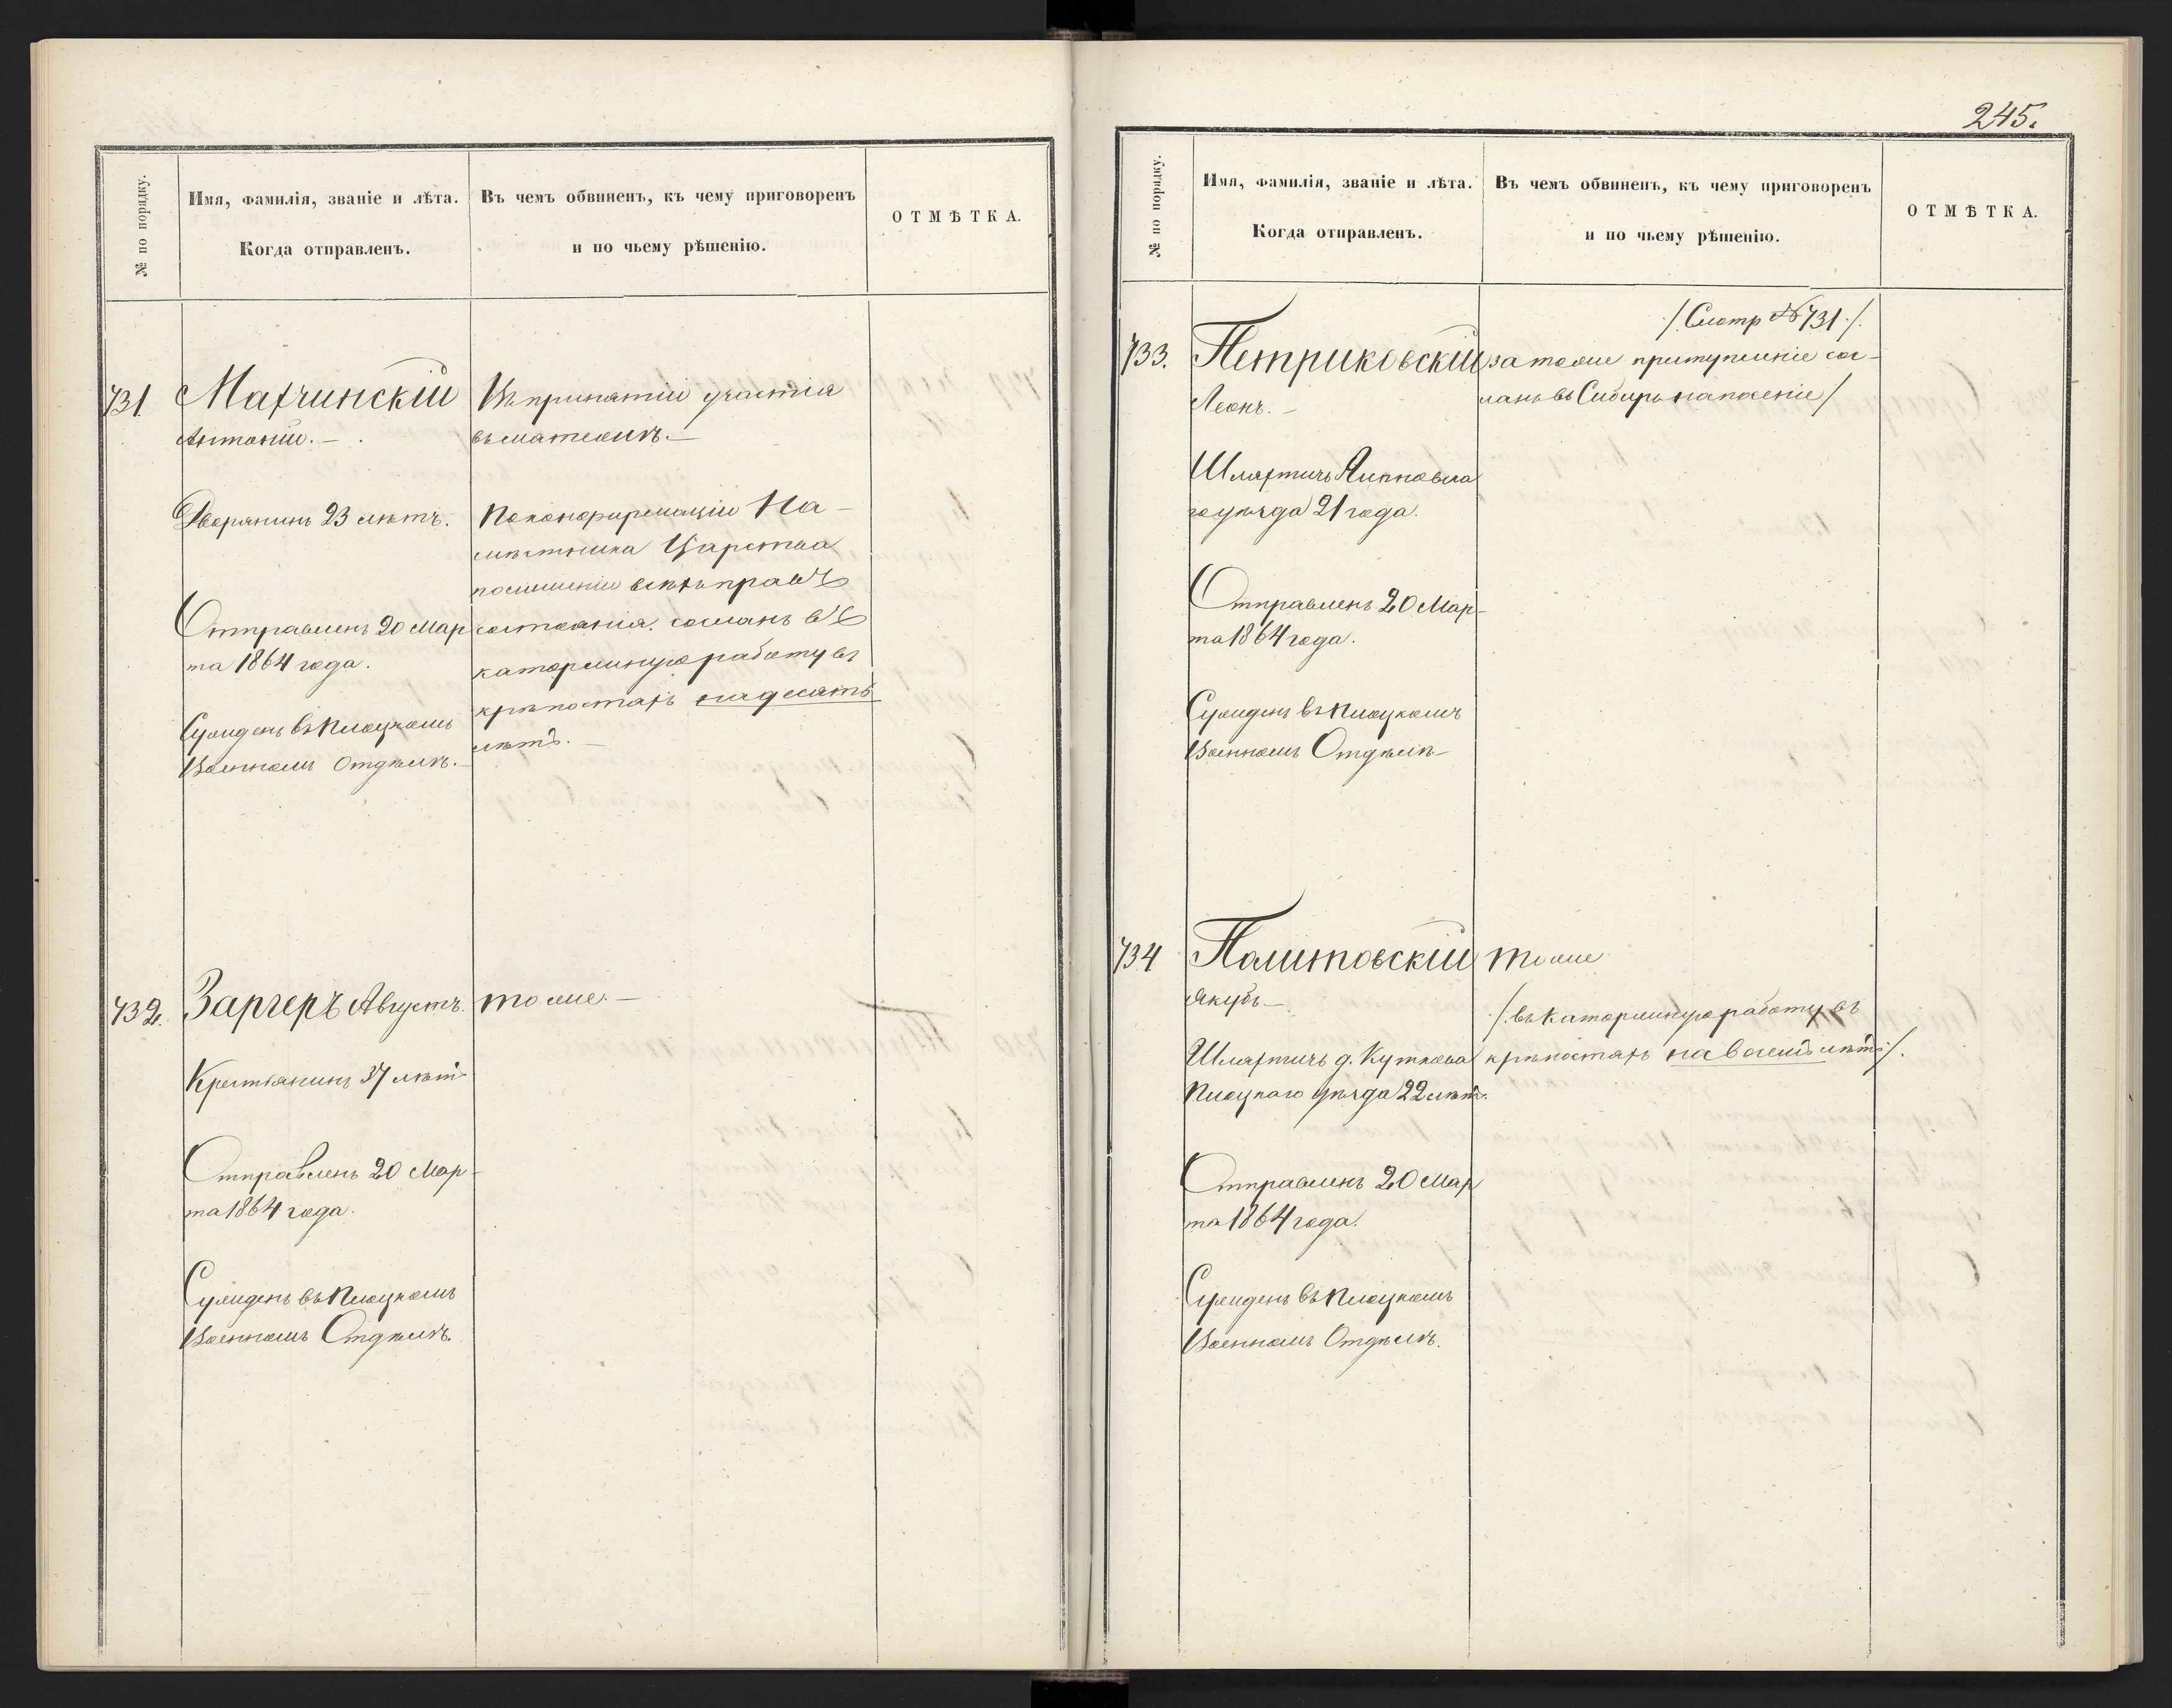 245.
№ по порядку.
Имя, фамилія, званіе и лѣта.
Когда отправленъ.
Въ чемъ обвиненъ, къ чему приговоренъ
и по чьему рѣшенію.
ОТМѢТКА.
731
Махчинскій
Антоній. —
Дворянинъ 23 лѣтъ.
Отправленъ 20 Мар
та 1864 года.
Сужденъ въ Плоцкомъ
Военномъ Отдѣлѣ. —
Въ принятіи участія
въ мятежѣ. —
По конфирмаціи На-
мѣстника Царства
по лишеніи всѣхъ правъ
состоянія. сосланъ въ
каторжную работу въ
крѣпостяхъ на десять
лѣтъ. —
732.
Заргеръ Августъ.
тоже. —
Крестьянинъ 37 лѣтъ
Отправленъ 20 Мар-
та 1864 года.
Сужденъ въ Плоцкомъ
Военномъ Отдѣлѣ.
№ по порядку.
Имя, фамилія, званіе и лѣта.
Когда отправленъ.
Въ чемъ обвиненъ, къ чему приговоренъ
и по чьему рѣшенію.
ОТМѢТКА.
733.
Петриковскій
Леонъ. —
Шляхтичъ Липновска
го уѣзда 21 года.
Отправленъ 20 Мар-
та 1864 года.
Сужденъ въ Плоцкомъ
Военномъ Отдѣлѣ —
/. Смотр № 731 ./.
за тоже преступленіе сос-
ланъ въ Сибирь на поселеніе /
734
Политовскій
тоже
Якубъ —
Шляхтичъ д. Куткова
Плоцкаго уѣзда 22 лѣтъ.
Отправленъ 20 Мар
та 1864 года.
Сужденъ въ Плоцкомъ
Военномъ Отдѣлѣ.
/. въ каторжную работу въ
крѣпостяхъ на восемь лѣтъ /.